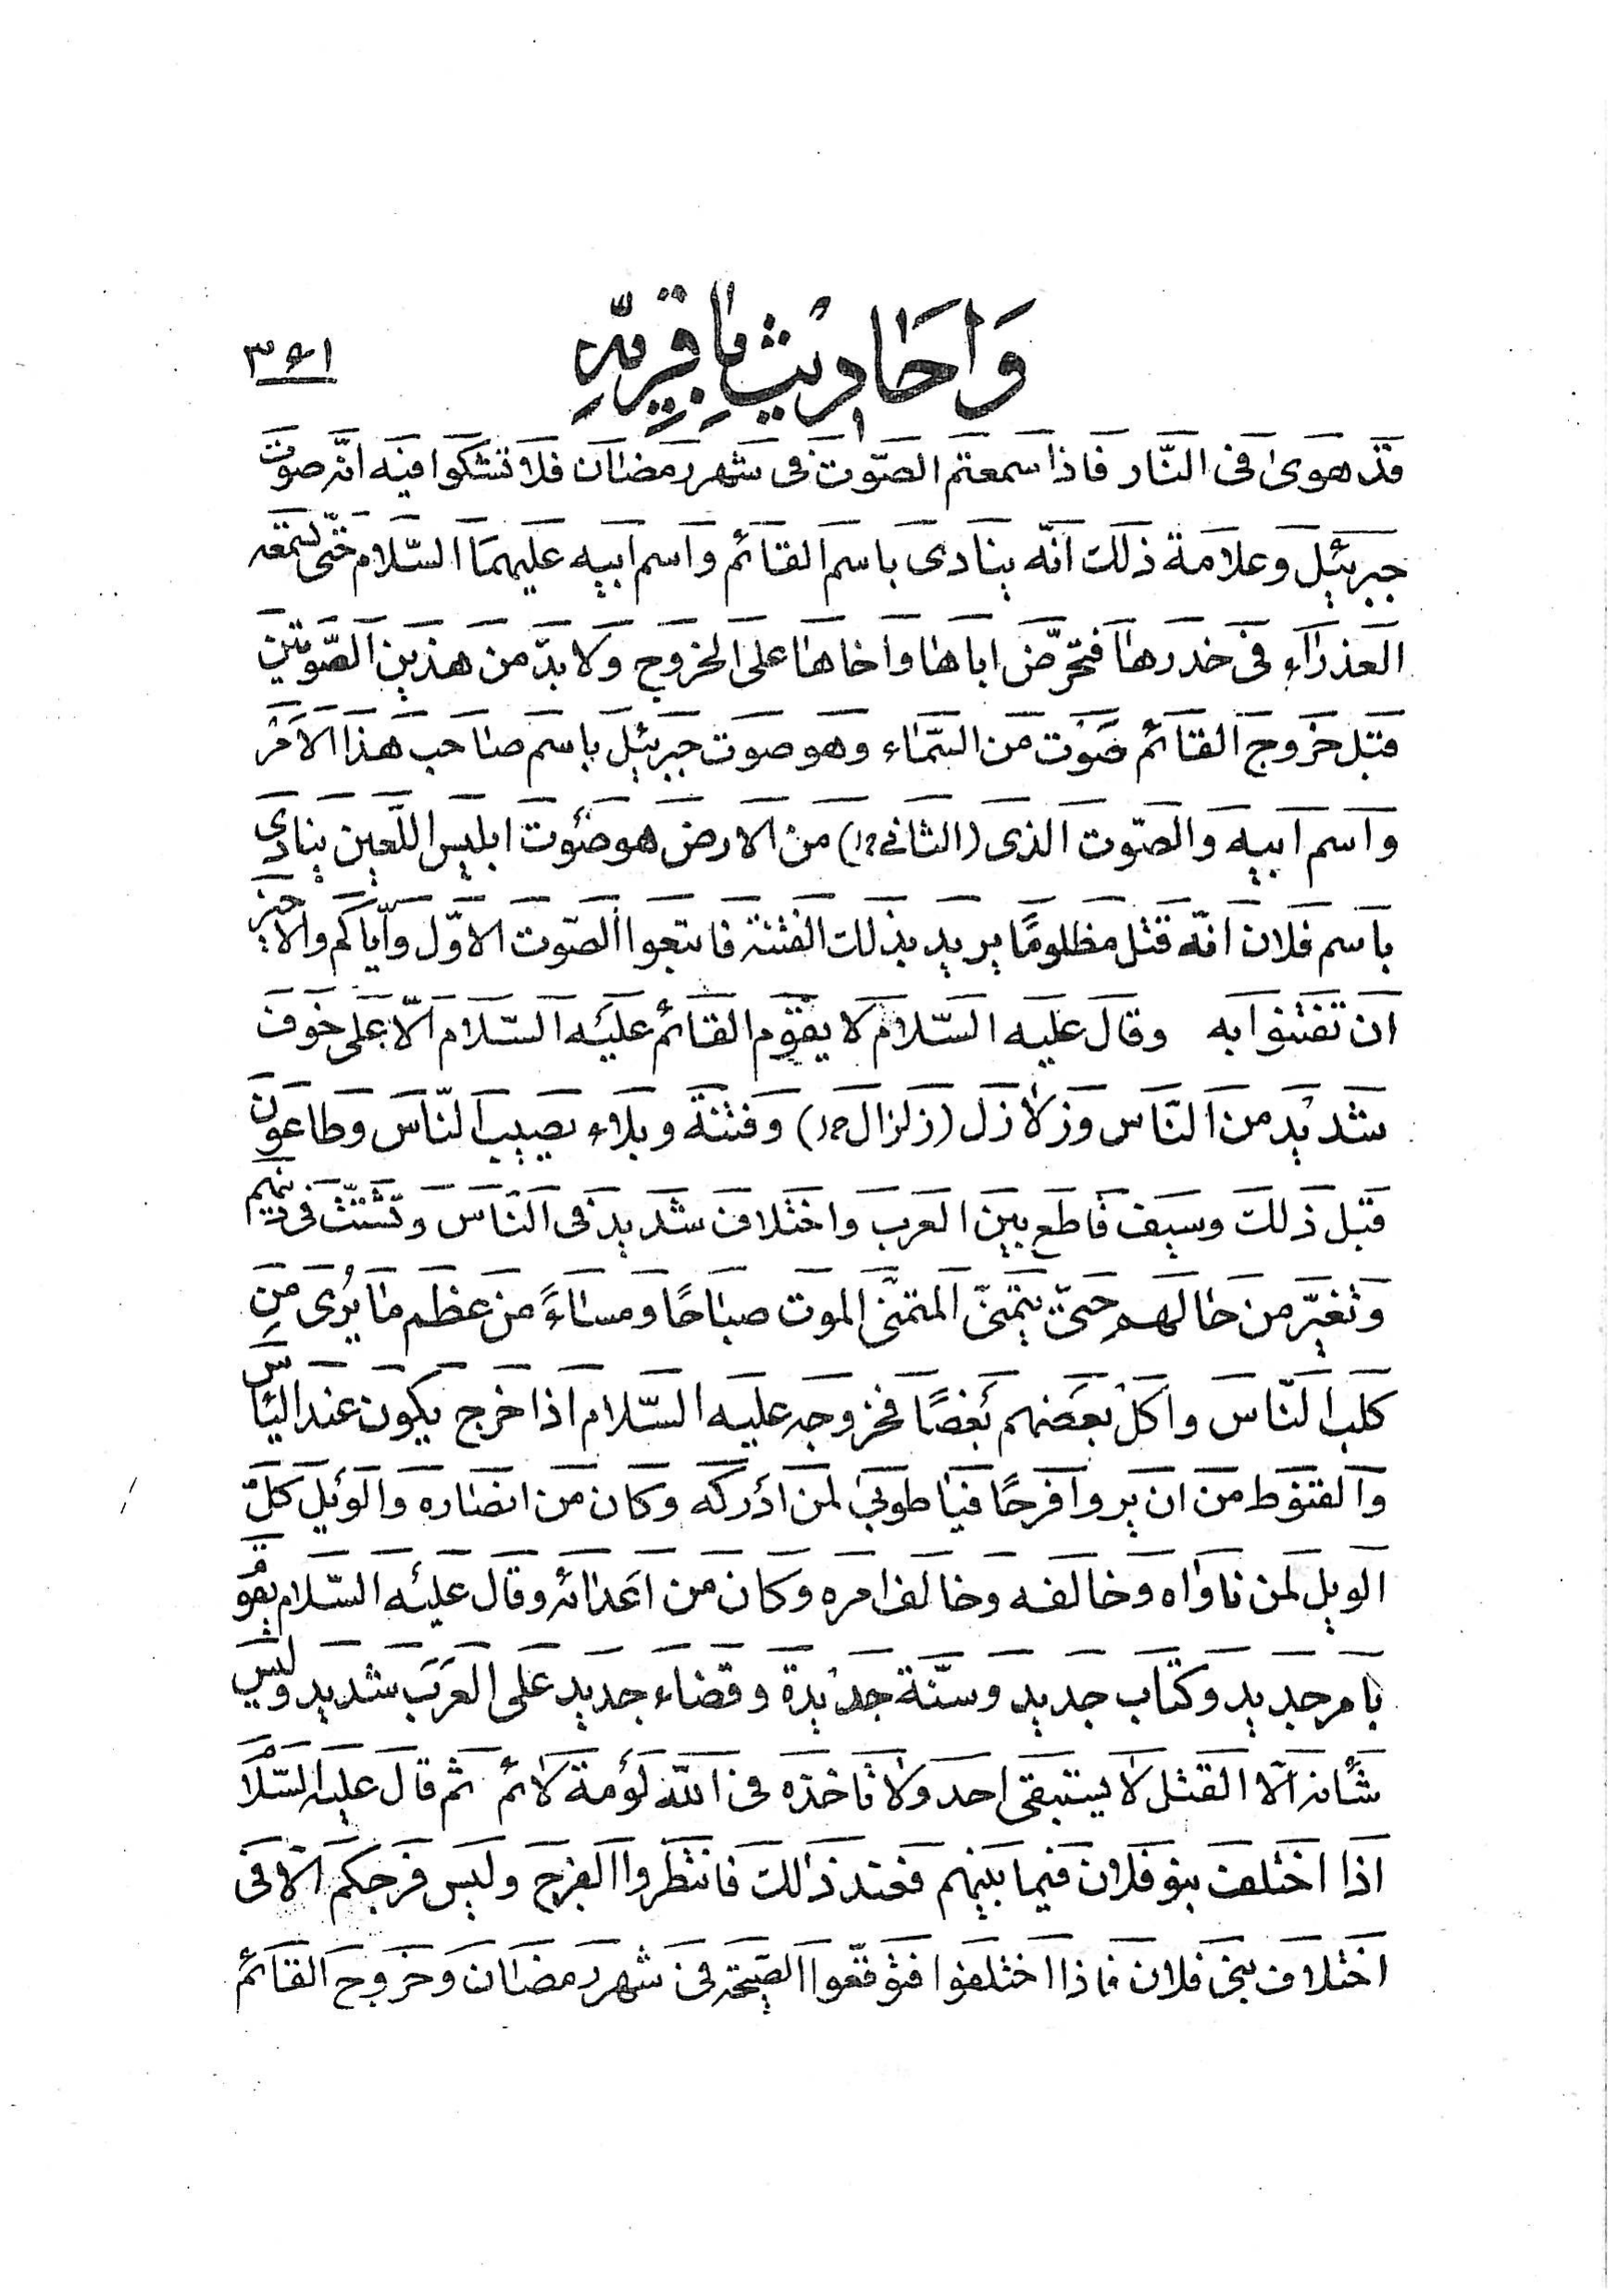 وَاَحَادِيْثِ بَاقِرِيّه
٣٦١
قد هوى فى النّار فاذا سمعتم الصّوت فى شهر رمضان فلا تشكوا فيه انّه صوت
جبرئيل وعلامة ذلك انّه ينادى باسم القائم واسم ابيه عليهما السّلام حتّى تسمعه
العذراء فى خدرها فتحرّض اباها واخاها على الخروج ولا بدّ من هذين الصّوتين
قبل خروج القائم صوت من السّماء وهو صوت جبرئيل باسم صاحب هذا الامر
واسم ابيه والصّوت الذى (الثانى ظ) من الارض هو صوت ابليس اللّعين ينادى
باسم فلان انّه قتل مظلومًا يريد بذلك الفتنة فاتبعوا الصّوت الاوّل وايّاكم والاخير
ان تفتنوا به وقال عليه السّلام لا يقوم القائم عليه السّلام الّا على خوف
شديد من النّاس وزلازل (زلزال ظ) وفتنة وبلاء يصيب النّاس وطاعون
قبل ذلك وسيف قاطع بين العرب واختلاف شديد فى النّاس وتشتّت فى دينهم
وتغيّر من حالهم حتّى يتمنّى المتمنّى الموت صباحًا ومساءً من عظم ما يُرى مِن
كلب النّاس واكل بعضهم بعضًا فخروجه عليه السّلام اذا خرج يكون عند اليأس
والقنوط من ان يروا فرجًا فيا طوبى لمن ادركه وكان من انصاره والويل كلّ
الويل لمن ناواه وخالفه وخالف امره وكان من اعدائه وقال عليه السّلام يقوم
بامر جديد وكتاب جديد وسنّة جديدة وقضاء جديد على العرب شديد وليس
شأنه الّا القتل لا يستبقى احد ولا تاخذه فى اللّه لومة لائم ثم قال عليه السّلام
اذا اختلف بنو فلان فيما بينهم فعند ذلك فانتظروا الفرج وليس فرجكم الّا فى
اختلاف بنى فلان فاذا اختلفوا فتوقّعوا الصّيحة فى شهر رمضان وخروج القائم